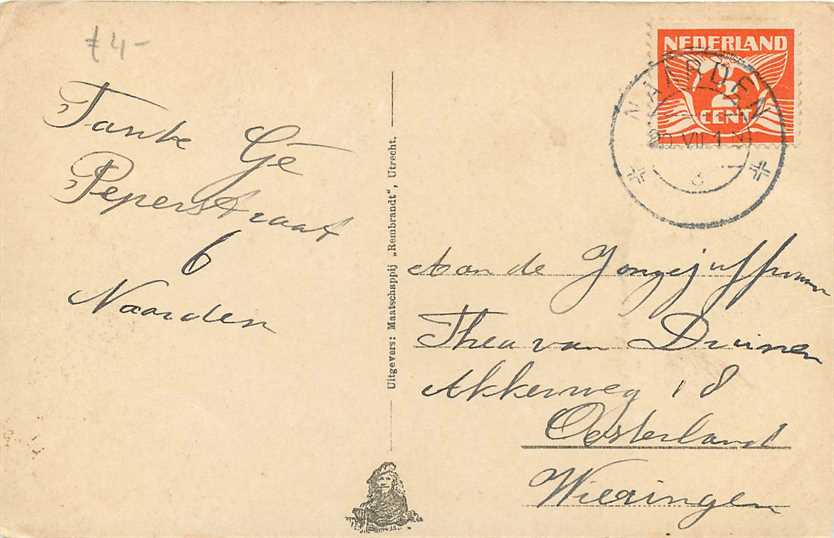 £4-
Tante Gé
Peperstraat
6
Naarden
Uitgevers: Maatschappij „Rembrandt", Utrecht.
NEDERLAND
2
CENT
NAARDEN
VII
Aan de Jongejuffrouw
Thea van Duinen
Akkerweg 18
Oosterland
Wieringen